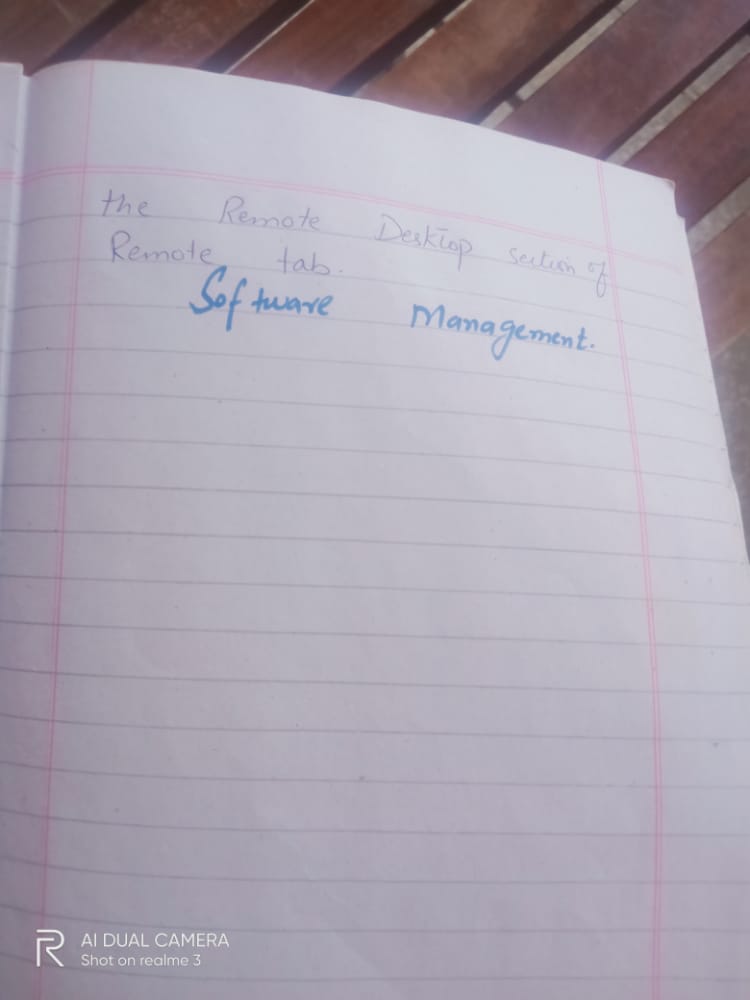 the Remote Desktop section of
Remote tab.
Software Management.
AI DUAL CAMERA
Shot on realme 3